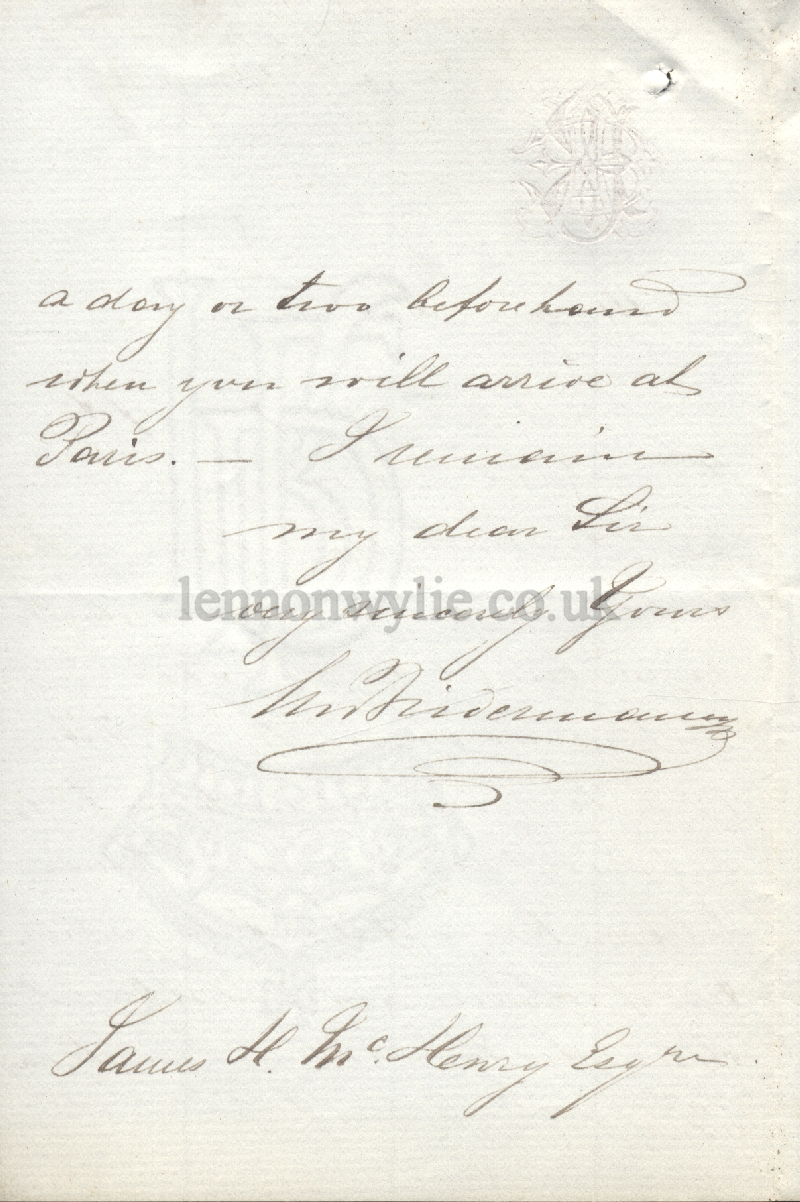 a day or two beforehand
when you will arrive at
Paris. — I remain
my dear Sir
very sincerely Yours
lennonwylie.co.uk
James H. Mc. Henry Esqre